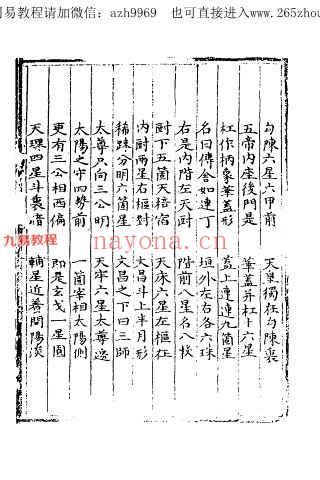 周易教程请加微信：azh9969 也可直接进入www.265zhou
勾陳六星六甲前 天皇獨在勾陳裏
五帝內座後門是 華蓋并杠十六星
杠作柄象華蓋形 蓋上連連九箇星
名曰傳舍如連丁 垣外左右各六珠
右是內階左天廚 階前八星名八榖
廚下五箇天棓宿 天床六星左樞在
內廚兩星右樞對 文昌斗上半月形
稀踈分明六箇星 文昌之下曰三師
太尊只向三公明 天牢六星太尊邊
太陽之守四勢前 一箇宰相太陽側
更有三公相西偏 即是玄戈一星圓
天理四星斗裏暗 輔星近著開陽淡
九易教程
nayona.cn